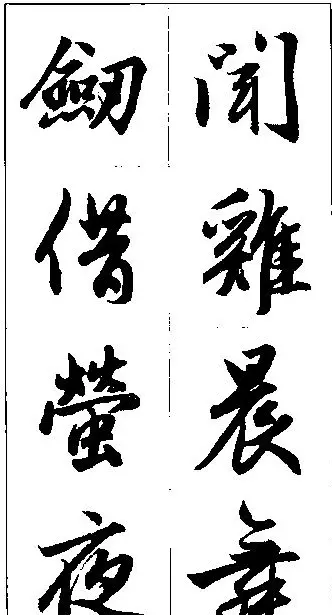 聞雞晨舞
劒借螢夜